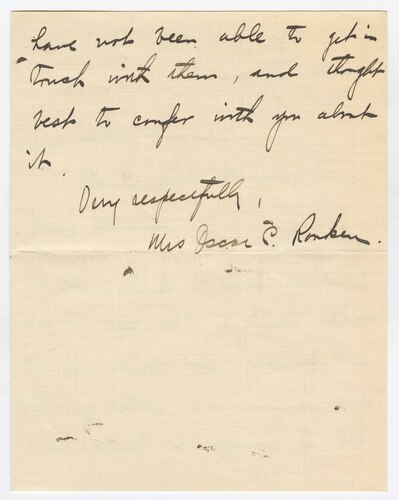 have not been able to get in
touch with them, and thought
best to confer with you about
it.
Very respectfully,
Mrs Oscar C. Ronken.